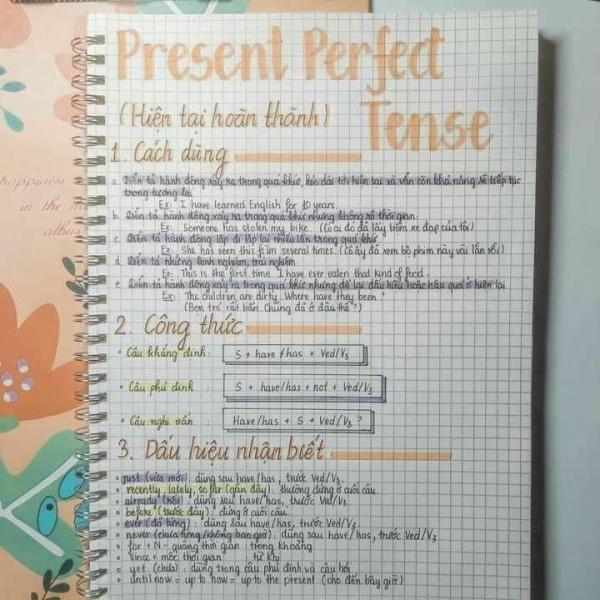 Present Perfect
Tense
(Hiện tại hoàn thành)
1. Cách dùng
a. Diễn tả hành động xảy ra trong quá khứ, kéo dài tới hiện tại và vẫn còn khả năng sẽ tiếp tục
trong tương lai
Ex: I have learned English for 10 years.
b. Diễn tả hành động xảy ra trong quá khứ nhưng không rõ thời gian.
Ex: Someone has stolen my bike. (Có ai đó đã lấy trộm xe đạp của tôi)
c. Diễn tả hành động lặp đi lặp lại nhiều lần trong quá khứ
Ex: She has seen this film several times. (Cô ấy đã xem bộ phim này vài lần rồi)
d. Diễn tả những kinh nghiệm, trải nghiệm.
Ex: This is the first time I have ever eaten that kind of food.
e. Diễn tả hành động xảy ra trong quá khứ nhưng để lại dấu hiệu hoặc hậu quả ở hiện tại
Ex: The children are dirty. Where have they been?
(Bọn trẻ rất bẩn. Chúng đã ở đâu thế?)
2. Công thức
• Câu khẳng định: S + have/has + Ved/V3
• Câu phủ định: S + have/has + not + Ved/V3
• Câu nghi vấn: Have/has + S + Ved/V3 ?
3. Dấu hiệu nhận biết
just (vừa mới): dùng sau have/has, trước Ved/V3.
• recently, lately, so far (gần đây): thường đứng ở cuối câu
• already (rồi): dùng sau have/has, trước Ved/V3.
• before (trước đây): đứng ở cuối câu.
• ever (đã từng): dùng sau have/has, trước Ved/V3.
• never (chưa từng/không bao giờ): dùng sau have/has, trước Ved/V3
• for + N - quãng thời gian: trong khoảng
• since + mốc thời gian: từ khi
• yet (chưa): dùng trong câu phủ định và câu hỏi
• until now = up to now = up to the present (cho đến bây giờ)
happiness
in the